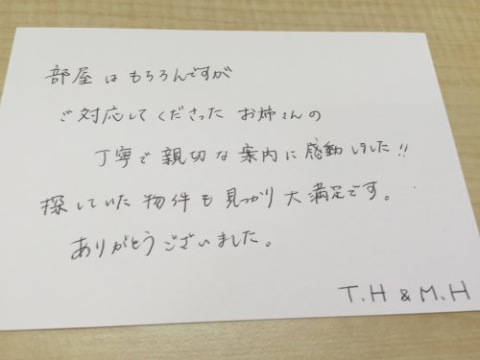 部屋はもちろんですが
ご対応してくださった お姉さんの
丁寧で親切な案内に感動しました!!
探していた物件も見つかり大満足です。
ありがとうございました。
T.H & M.H